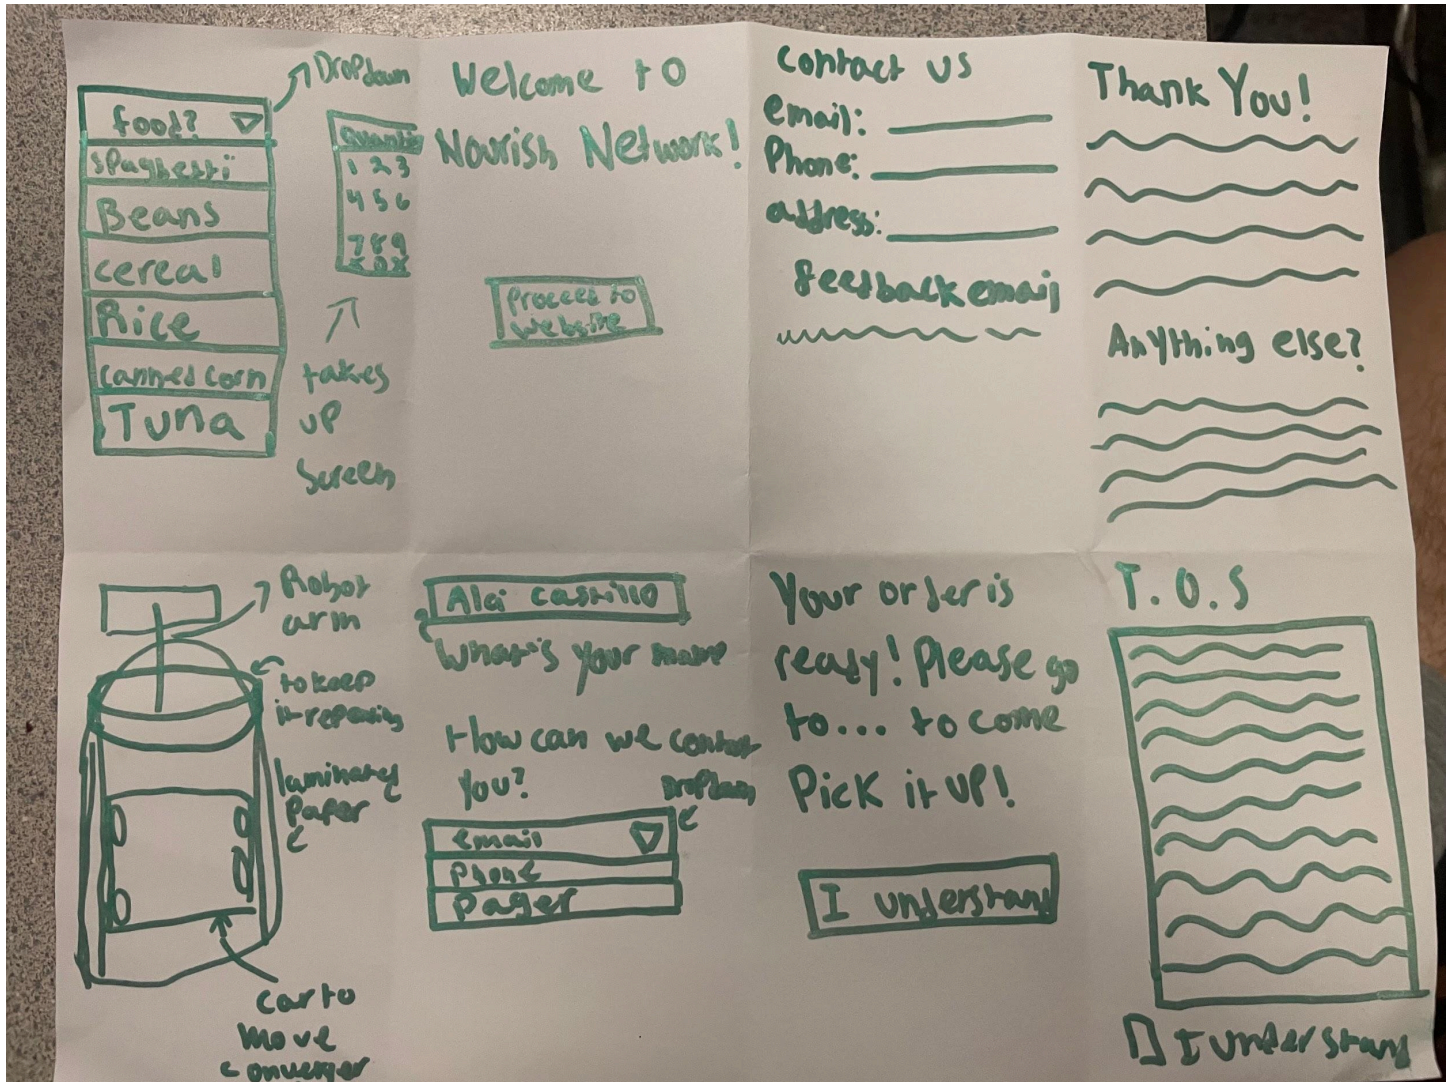 Dropdown
food?
spaghetti
Beans
cereal
Rice
canned corn
Tuna
1 2 3
4 5 6
7 8 9
takes
up
screen
Welcome to
Nourish Network!
Proceed to
website
Contact us
email:
Phone:
address:
feedback email
Thank You!
Anything else?
Robot
arm
to keep
it repeating
laminated
Paper
car to
move
Castillo
What's your name
How can we contact
you?
Dropdown
email
Phone
Pager
Your order is
ready! Please go
to... to come
Pick it up!
I understand
T.O.S
I understand